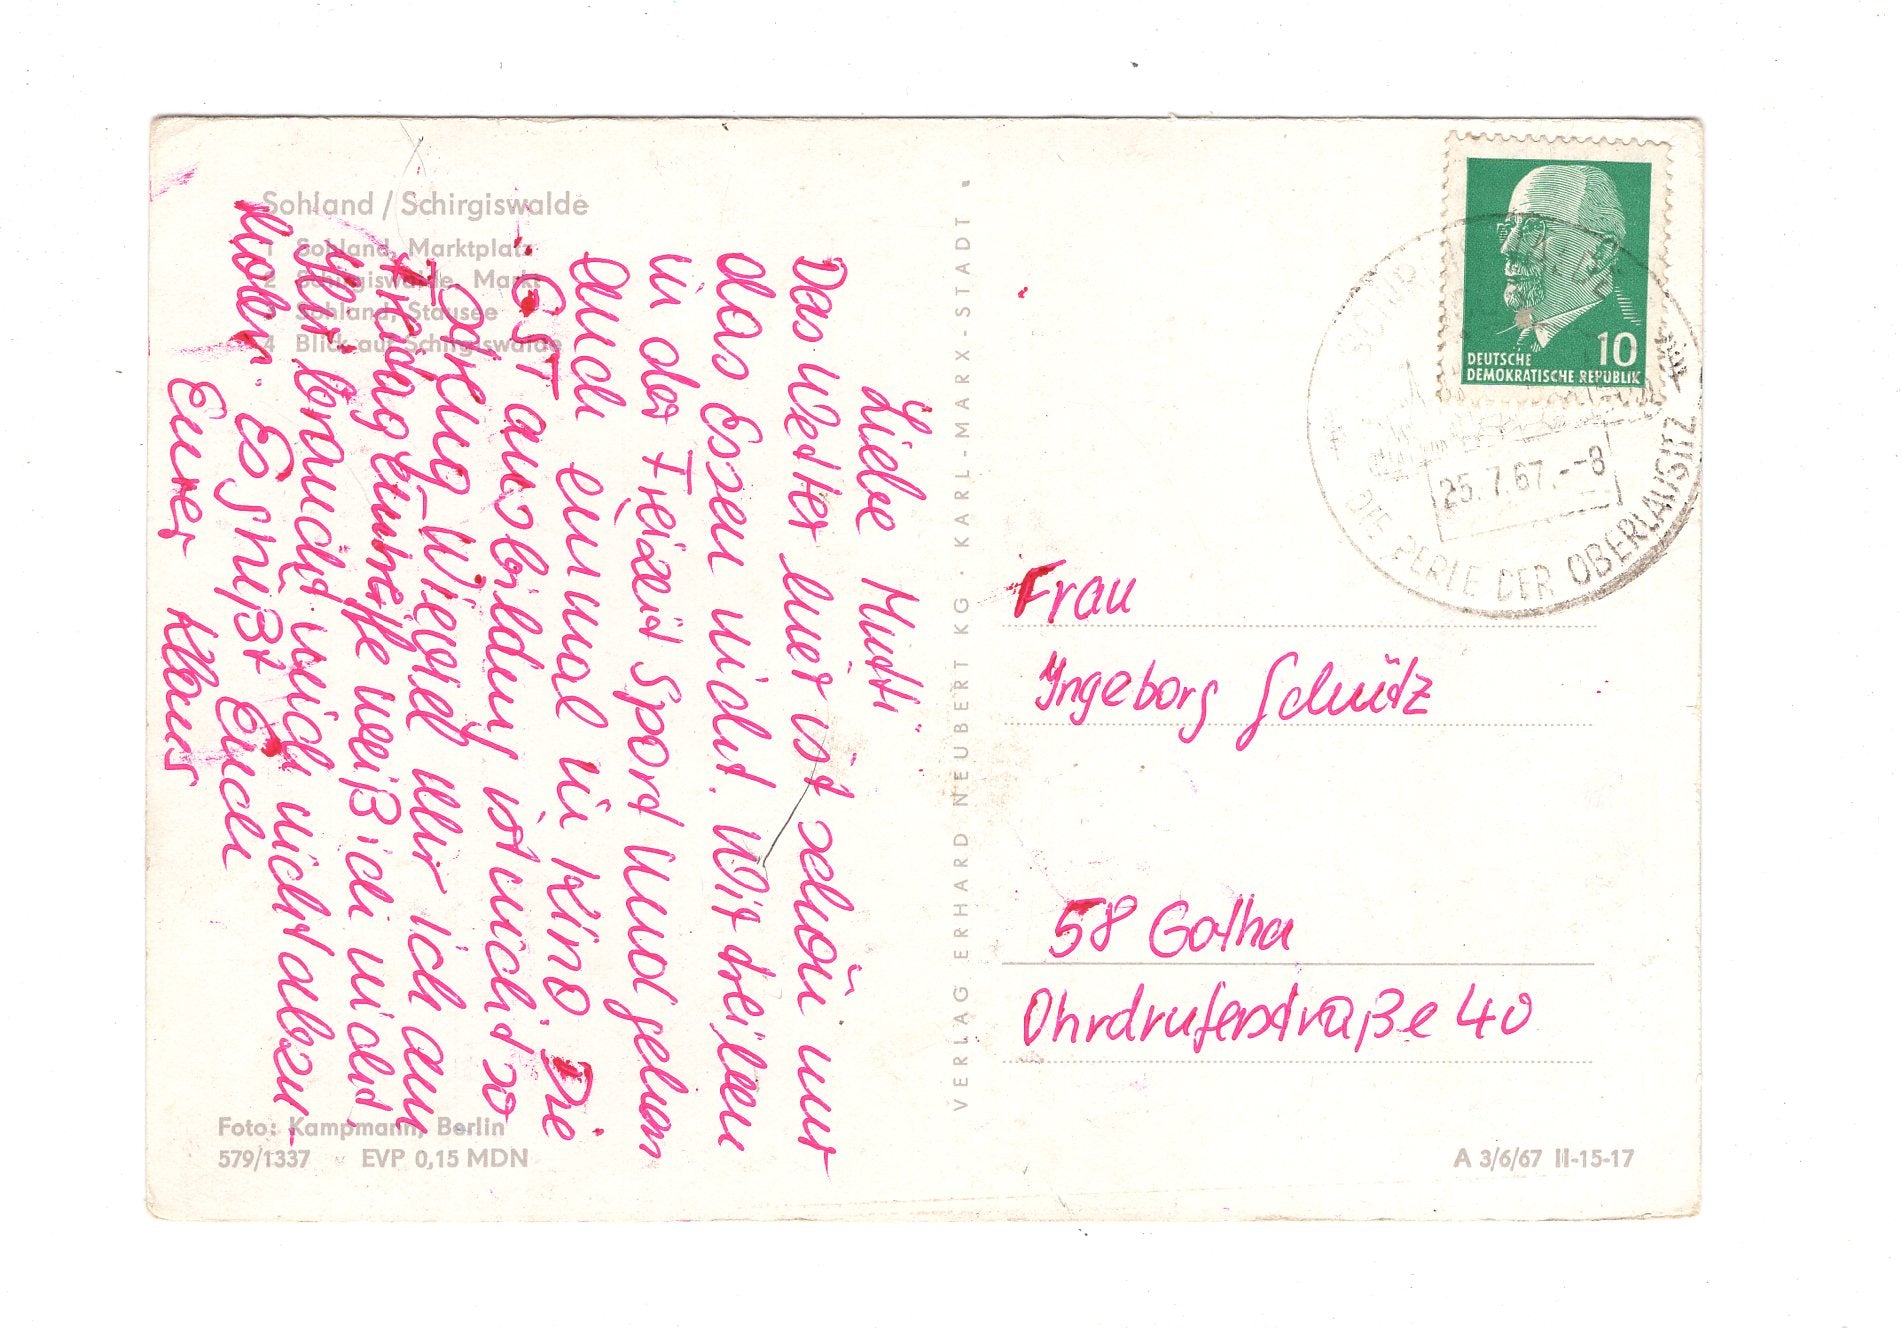 Sohland / Schirgiswalde
1 Sohland, Marktplatz
2 Schirgiswalde, Markt
3 Sohland, Stausee
4 Blick auf Schirgiswalde
Liebe Mutti
Das Wetter hier ist schön nur
das Essen nicht. Wir treiben
in der Freizeit Sport und gehen
auch einmal in Kino. Die
GST ausbildung ist nicht so
streng. Wieviel Uhr ich am
Freitag eintreffe weiß ich nicht.
Ihr braucht mich nicht abzu-
holen. Es grüßt Euch
Eurer Klaus
Foto: Kampmann, Berlin
579/1337 EVP 0,15 MDN
VERLAG ERHARD NEUBERT KG · KARL-MARX-STADT
10
DEUTSCHE
DEMOKRATISCHE REPUBLIK
25.7.67.--8
DIE PERLE DER OBERLAUSITZ
Frau
Ingeborg Schütz
58 Gotha
Ohrdruferstraße 40
A 3/6/67 II-15-17